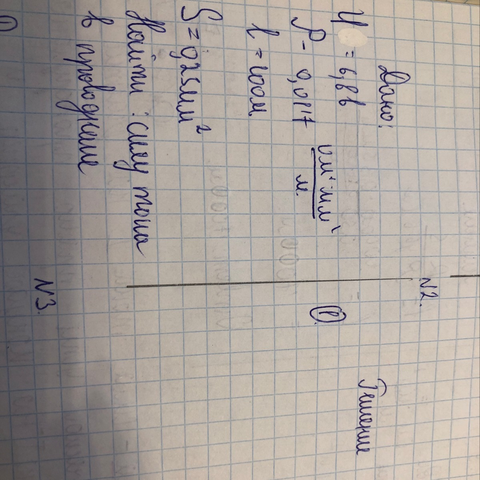 N2.
Дано:
U = 6,8В
ρ - 0,017 ом·мм² / м
l = 100м
S = 0,25мм²
Найти: силу тока
в проводнике
Решение
①.
N3.
①